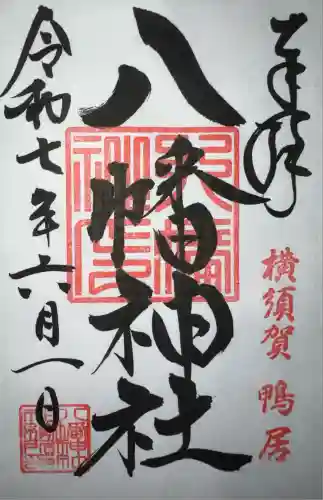 奉拝
横須賀 鴨居
八幡神社
令和七年六月一日